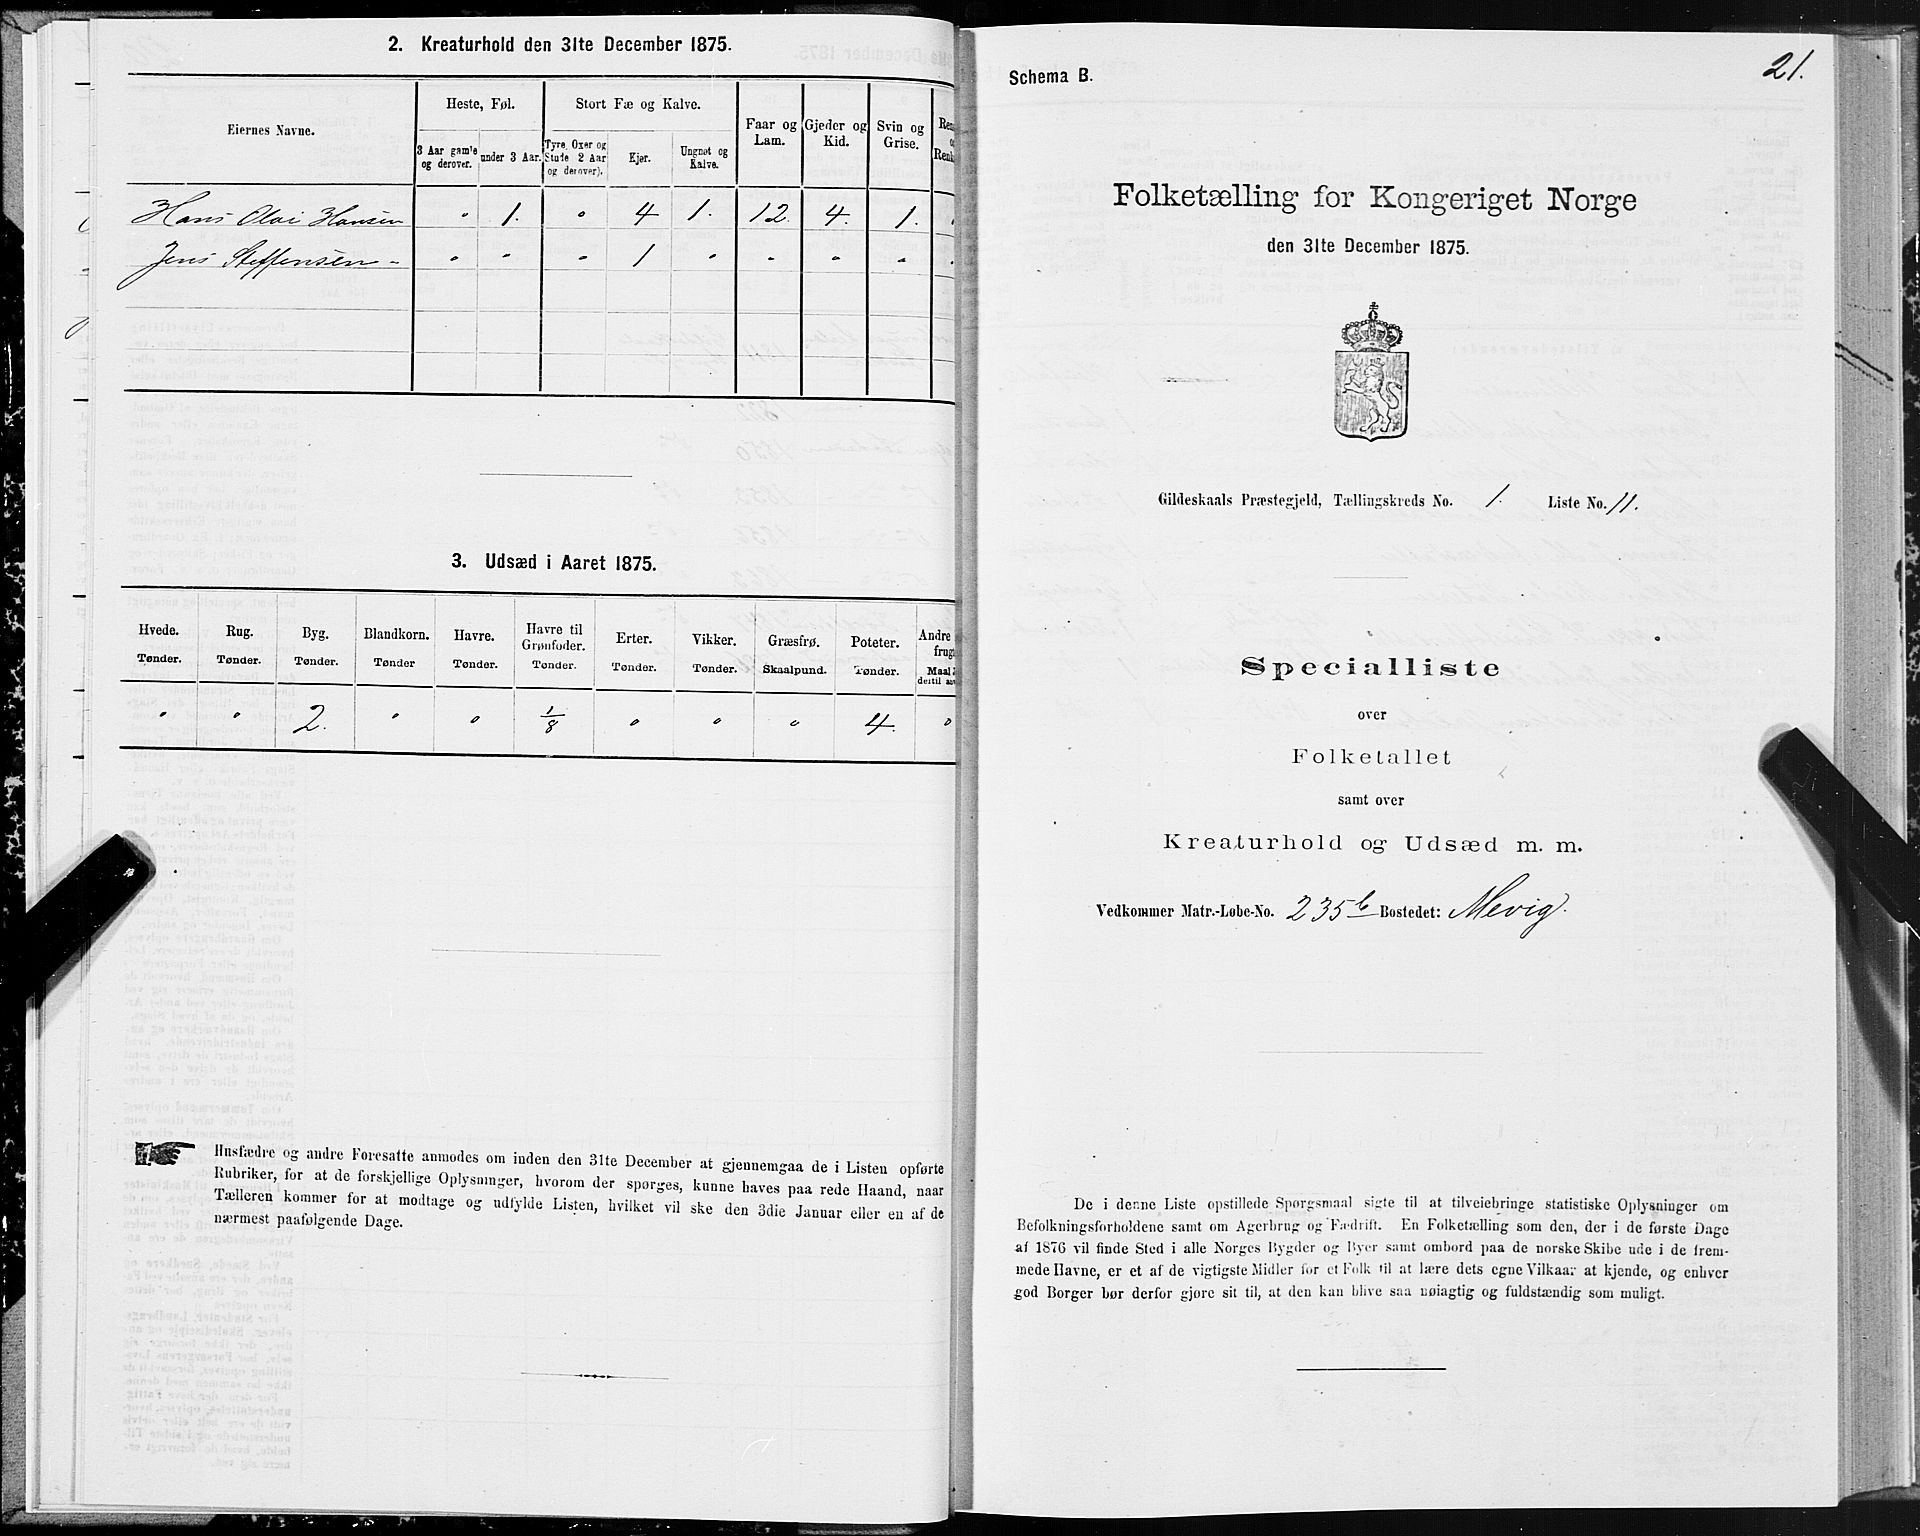 2. Kreaturhold den 31te December 1875.
Eiernes Navne.
Heste, Føl.
Stort Fæ og Kalve.
Faar og Lam.
Gjeder og Kid.
Svin og Grise.
3 Aar gamle og derover.
under 3 Aar.
Tyre, Oxer og Stude 2 Aar og derover).
Kjør.
Ungnøt og Kalve.
Hans Olai Hansen " 1. " 4 1. 12. 4. 1. "
Jens Steffensen - " " " 1 " " " "
3. Udsæd i Aaret 1875.
Hvede. Rug. Byg. Blandkorn. Havre. Havre til Grønfoder. Erter. Vikker. Græsfrø. Poteter. Andre
Tønder. Tønder. Tønder. Tønder Tønder. Tønder. Tønder. Tønder. Skaalpund. Tønder. Maal
" " 2. " " 1/8 " " " 4. "
Husfædre og andre Foresatte anmodes om inden den 31te December at gjennemgaa de i Listen opførte
Rubriker, for at de forskjellige Oplysninger, hvorom der spørges, kunne haves paa rede Haand, naar
Tælleren kommer for at modtage og udfylde Listen, hvilket vil ske den 3die Januar eller en af de
nærmest paafølgende Dage.
21.
Schema B.
Folketælling for Kongeriget Norge
den 31te December 1875.
Gildeskaals Præstegjeld, Tællingskreds No. 1. Liste No. 11.
Specialliste
over
Folketallet
samt over
Kreaturhold og Udsæd m. m.
Vedkommer Matr.-Løbe-No. 235b Bostedet: Mevig.
De i denne Liste opstillede Spørgsmaal sigte til at tilveiebringe statistiske Oplysninger om
Befolkningsforholdene samt om Agerbrug og Fædrift. En Folketælling som den, der i de første Dage
af 1876 vil finde Sted i alle Norges Bygder og Byer samt ombord paa de norske Skibe ude i de frem-
mede Havne, er et af de vigtigste Midler for et Folk til at lære dets egne Vilkaar at kjende, og enhver
god Borger bør derfor gjøre sit til, at den kan blive saa nøiagtig og fuldstændig som muligt.